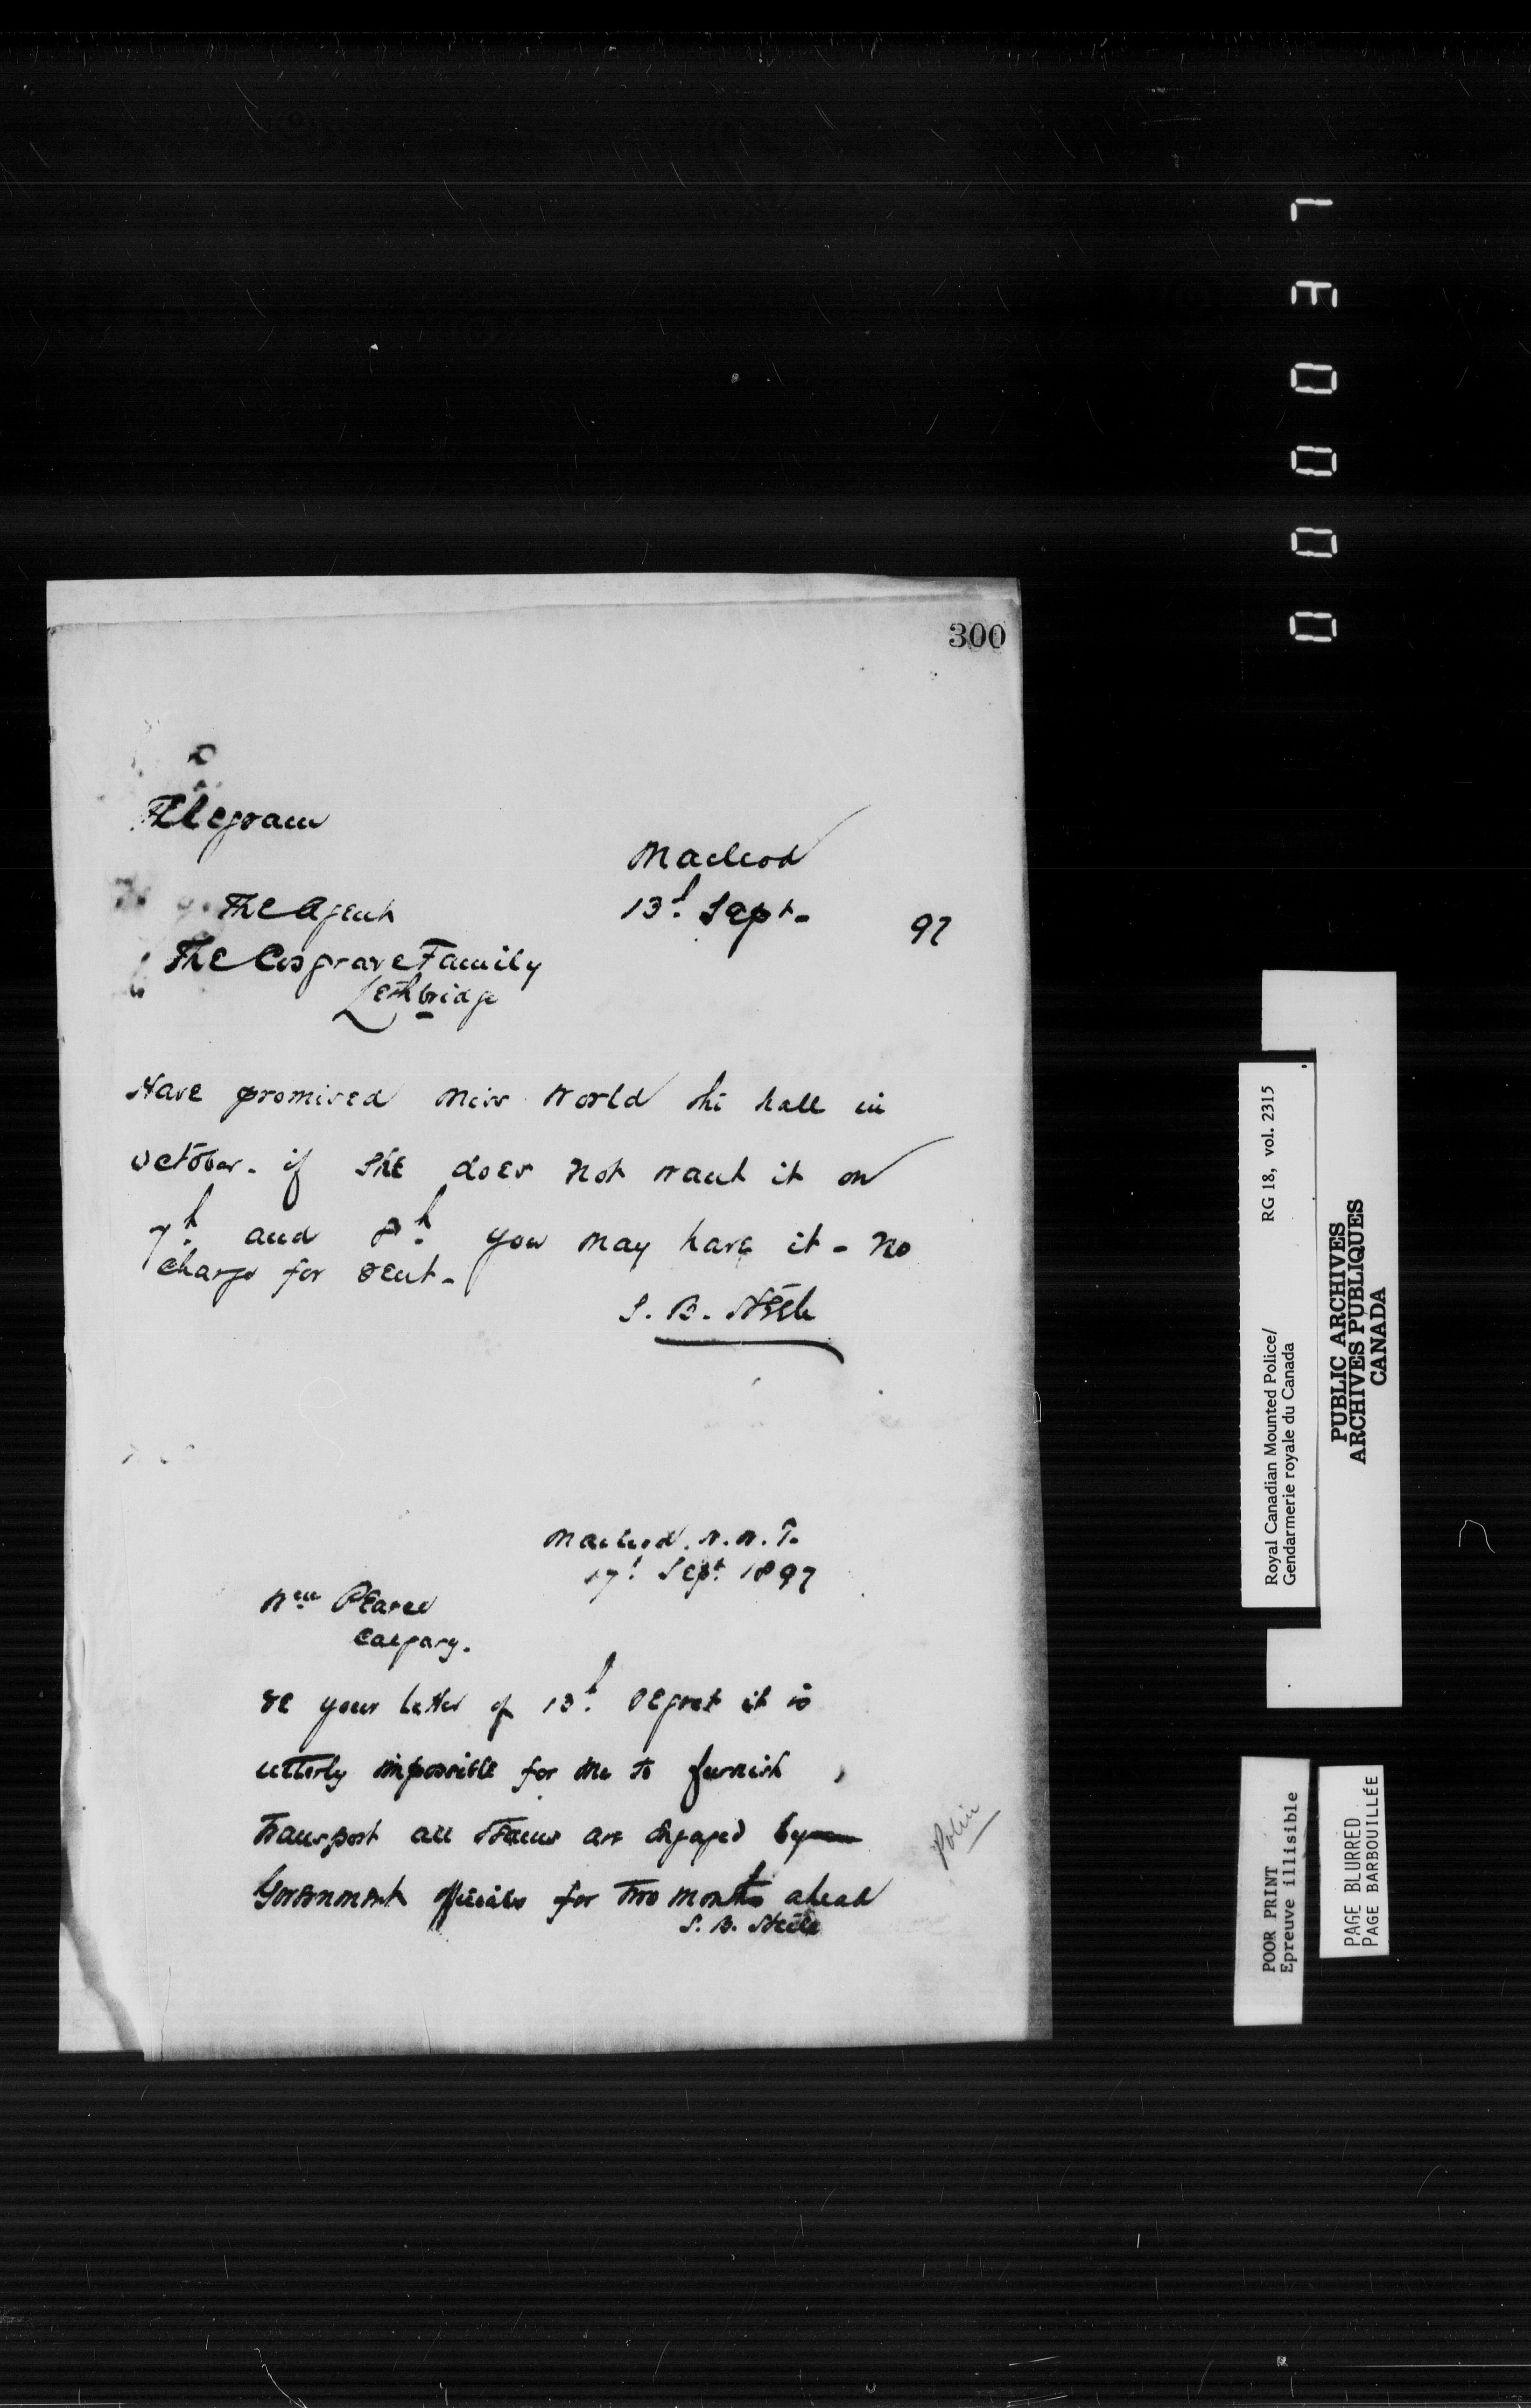 300
Telegram
Macleod
13th Sept. 97
The Agent
The Cosgrave Family
Lethbridge
Have promised Miss World the hall in
October. if she does not want it on
7th and 8th you may have it - no
charge for rent.
S. B. Steele
Macleod. N.W.T.
17th Sept 1897
Wm Pearce
Calgary.
re your letter of 13th regret it is
utterly impossible for me to furnish
Transport all Teams are engaged by
Government officials for two months ahead
S. B. Steele
000037
Royal Canadian Mounted Police/ RG 18, vol. 2315
Gendarmerie royale du Canada
PUBLIC ARCHIVES
ARCHIVES PUBLIQUES
CANADA
POOR PRINT
Epreuve illisible
PAGE BLURRED
PAGE BARBOUILLÉE